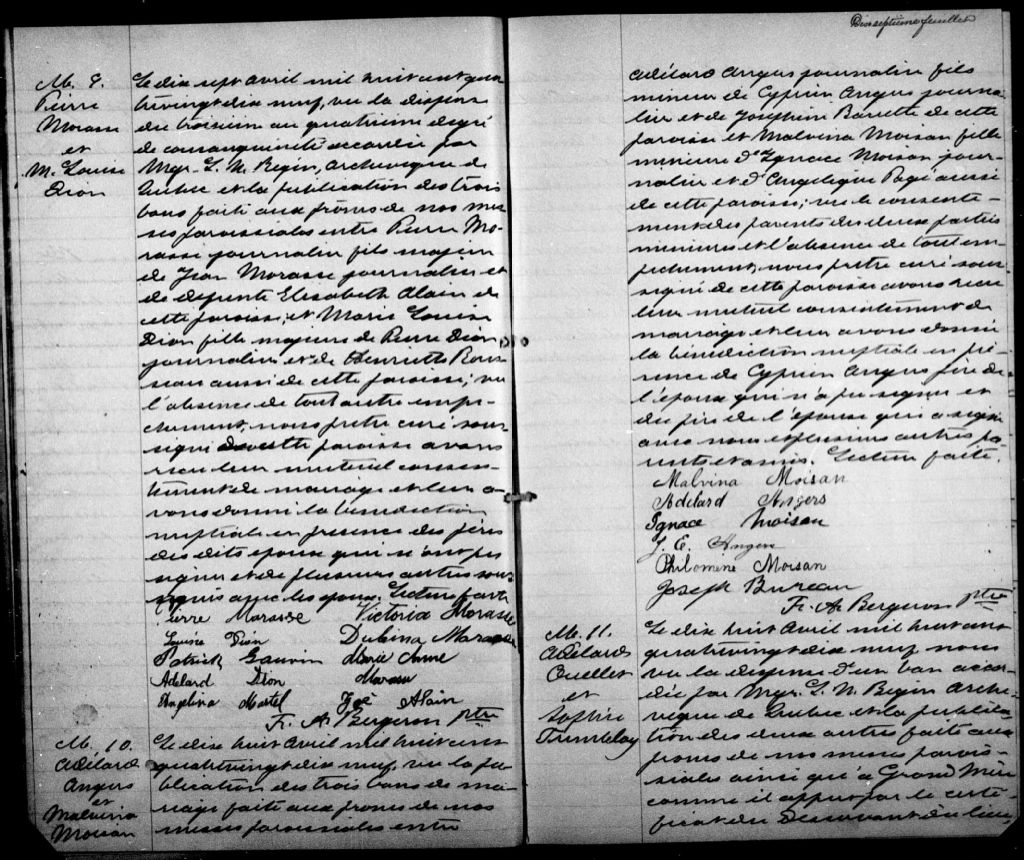 M. 9.
Pierre
Morasse
et
M. Louise
Dion
Le dix sept Avril mil huit cent qua
trevingt dix neuf, vu la dispense
du troisieme au quatrieme degré
de consanguinité accordée par
Mgr. L. N. Begin, archeveque de
Quebec et la publication des trois
bans faite aux prones de nos mes
ses paroissiales entre Pierre Mo-
rasse journalier fils majeur
de Jean Morasse journalier et
de defunte Elisabeth Alain de
cette paroisse, et Marie Louise
Dion fille majeure de Pierre Dion
journalier et de Henriette Rous
seau aussi de cette paroisse; vu
l'absence de tout autre empe-
chement, nous pretre curé sous-
signé de cette paroisse avons
reçu leur mutuel consen-
tement de mariage et leur a-
vons donné la bénédiction
nuptiale en presence des pères
des dits epoux qui n'ont pu
signer et de plusieurs autres sous-
signés avec les epoux. Lecture faite
Pierre Morasse Victoria Morasse
Louise Dion Dulvina Morasse
Patrick Gauvin Marie Anne
Adelard Dion Morasse
Angelina Martel Joé Alain
Fr. A. Bergeron Ptre
M. 10.
Adélard
Angers
et
Malvina
Moisan
Le dix huit Avril mil huit cent
quatrevingt dix neuf, vu la pu-
blication des trois bans de ma-
riage faite aux prones de nos
messes paroissiales entre
Dix septième feuillet
Adélard Angers journalier fils
mineur de Cyprien Angers journa-
lier et de Josephine Barrette de cette
paroisse et Malvina Moisan fille
mineure d'Ignace Moisan jour-
nalier et d'Angelique Pagé aussi
de cette paroisse; vu le consente-
ment des parents des deux parties
mineures et l'absence de tout em-
pechement, nous pretre curé sous-
signé de cette paroisse avons reçu
leur mutuel consentement de
mariage et leur avons donné
la bénédiction nuptiale en pré-
sence de Cyprien Angers père de
l'epoux qui n'a pu signer et
du père de l'épouse qui a signé
avec nous et plusieurs autres pa-
rents et amis. Lecture faite.
Malvina Moisan
Adelard Angers
Ignace Moisan
J. E. Angers
Philomène Moisan
Joseph Bureau
Fr. A. Bergeron Ptre
M. 11.
Adélard
Ouellet
et
Sophie
Tremblay
Le dix huit Avril mil huit cent
quatrevingt dix neuf, nous
vu la dispense d'un ban accor-
dée par Mgr. L. N. Begin Arche-
veque de Quebec et la publica-
tion des deux autres faite aux
prones de nos messes parois-
siales ainsi qu'à Grand'Mère
comme il appert par le certi-
ficat du Desservant du lieu